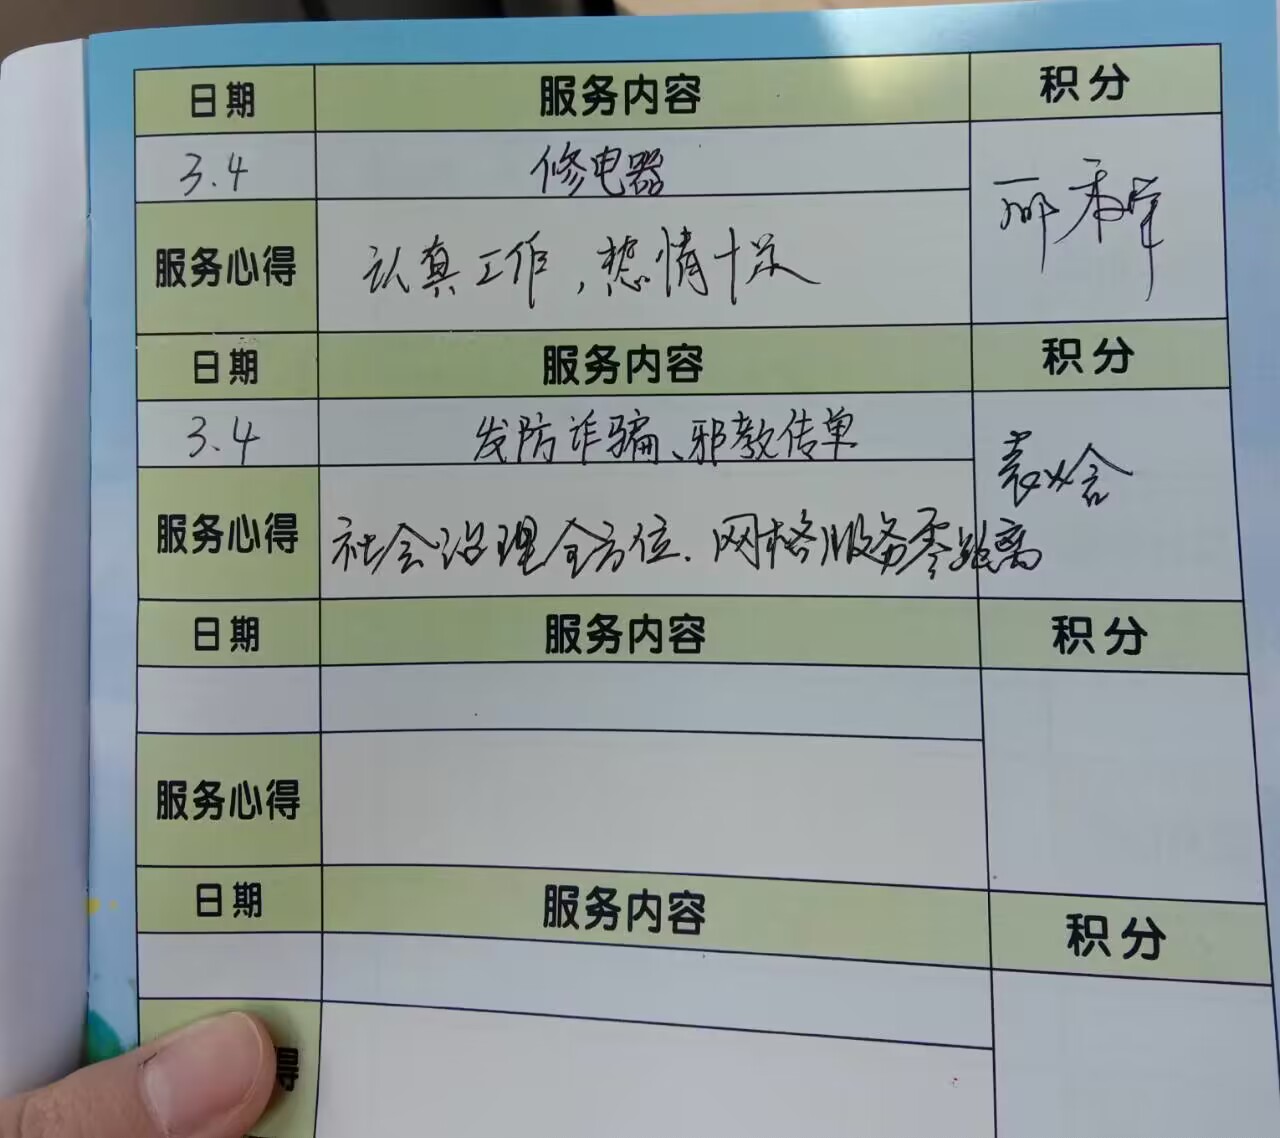 日期 服务内容 积分
3.4 修电器
服务心得 认真工作，热情十足
日期 服务内容 积分
3.4 发防诈骗、邪教传单
服务心得 社会治理全方位.网格服务零距离
日期 服务内容 积分
服务心得
日期 服务内容 积分
得